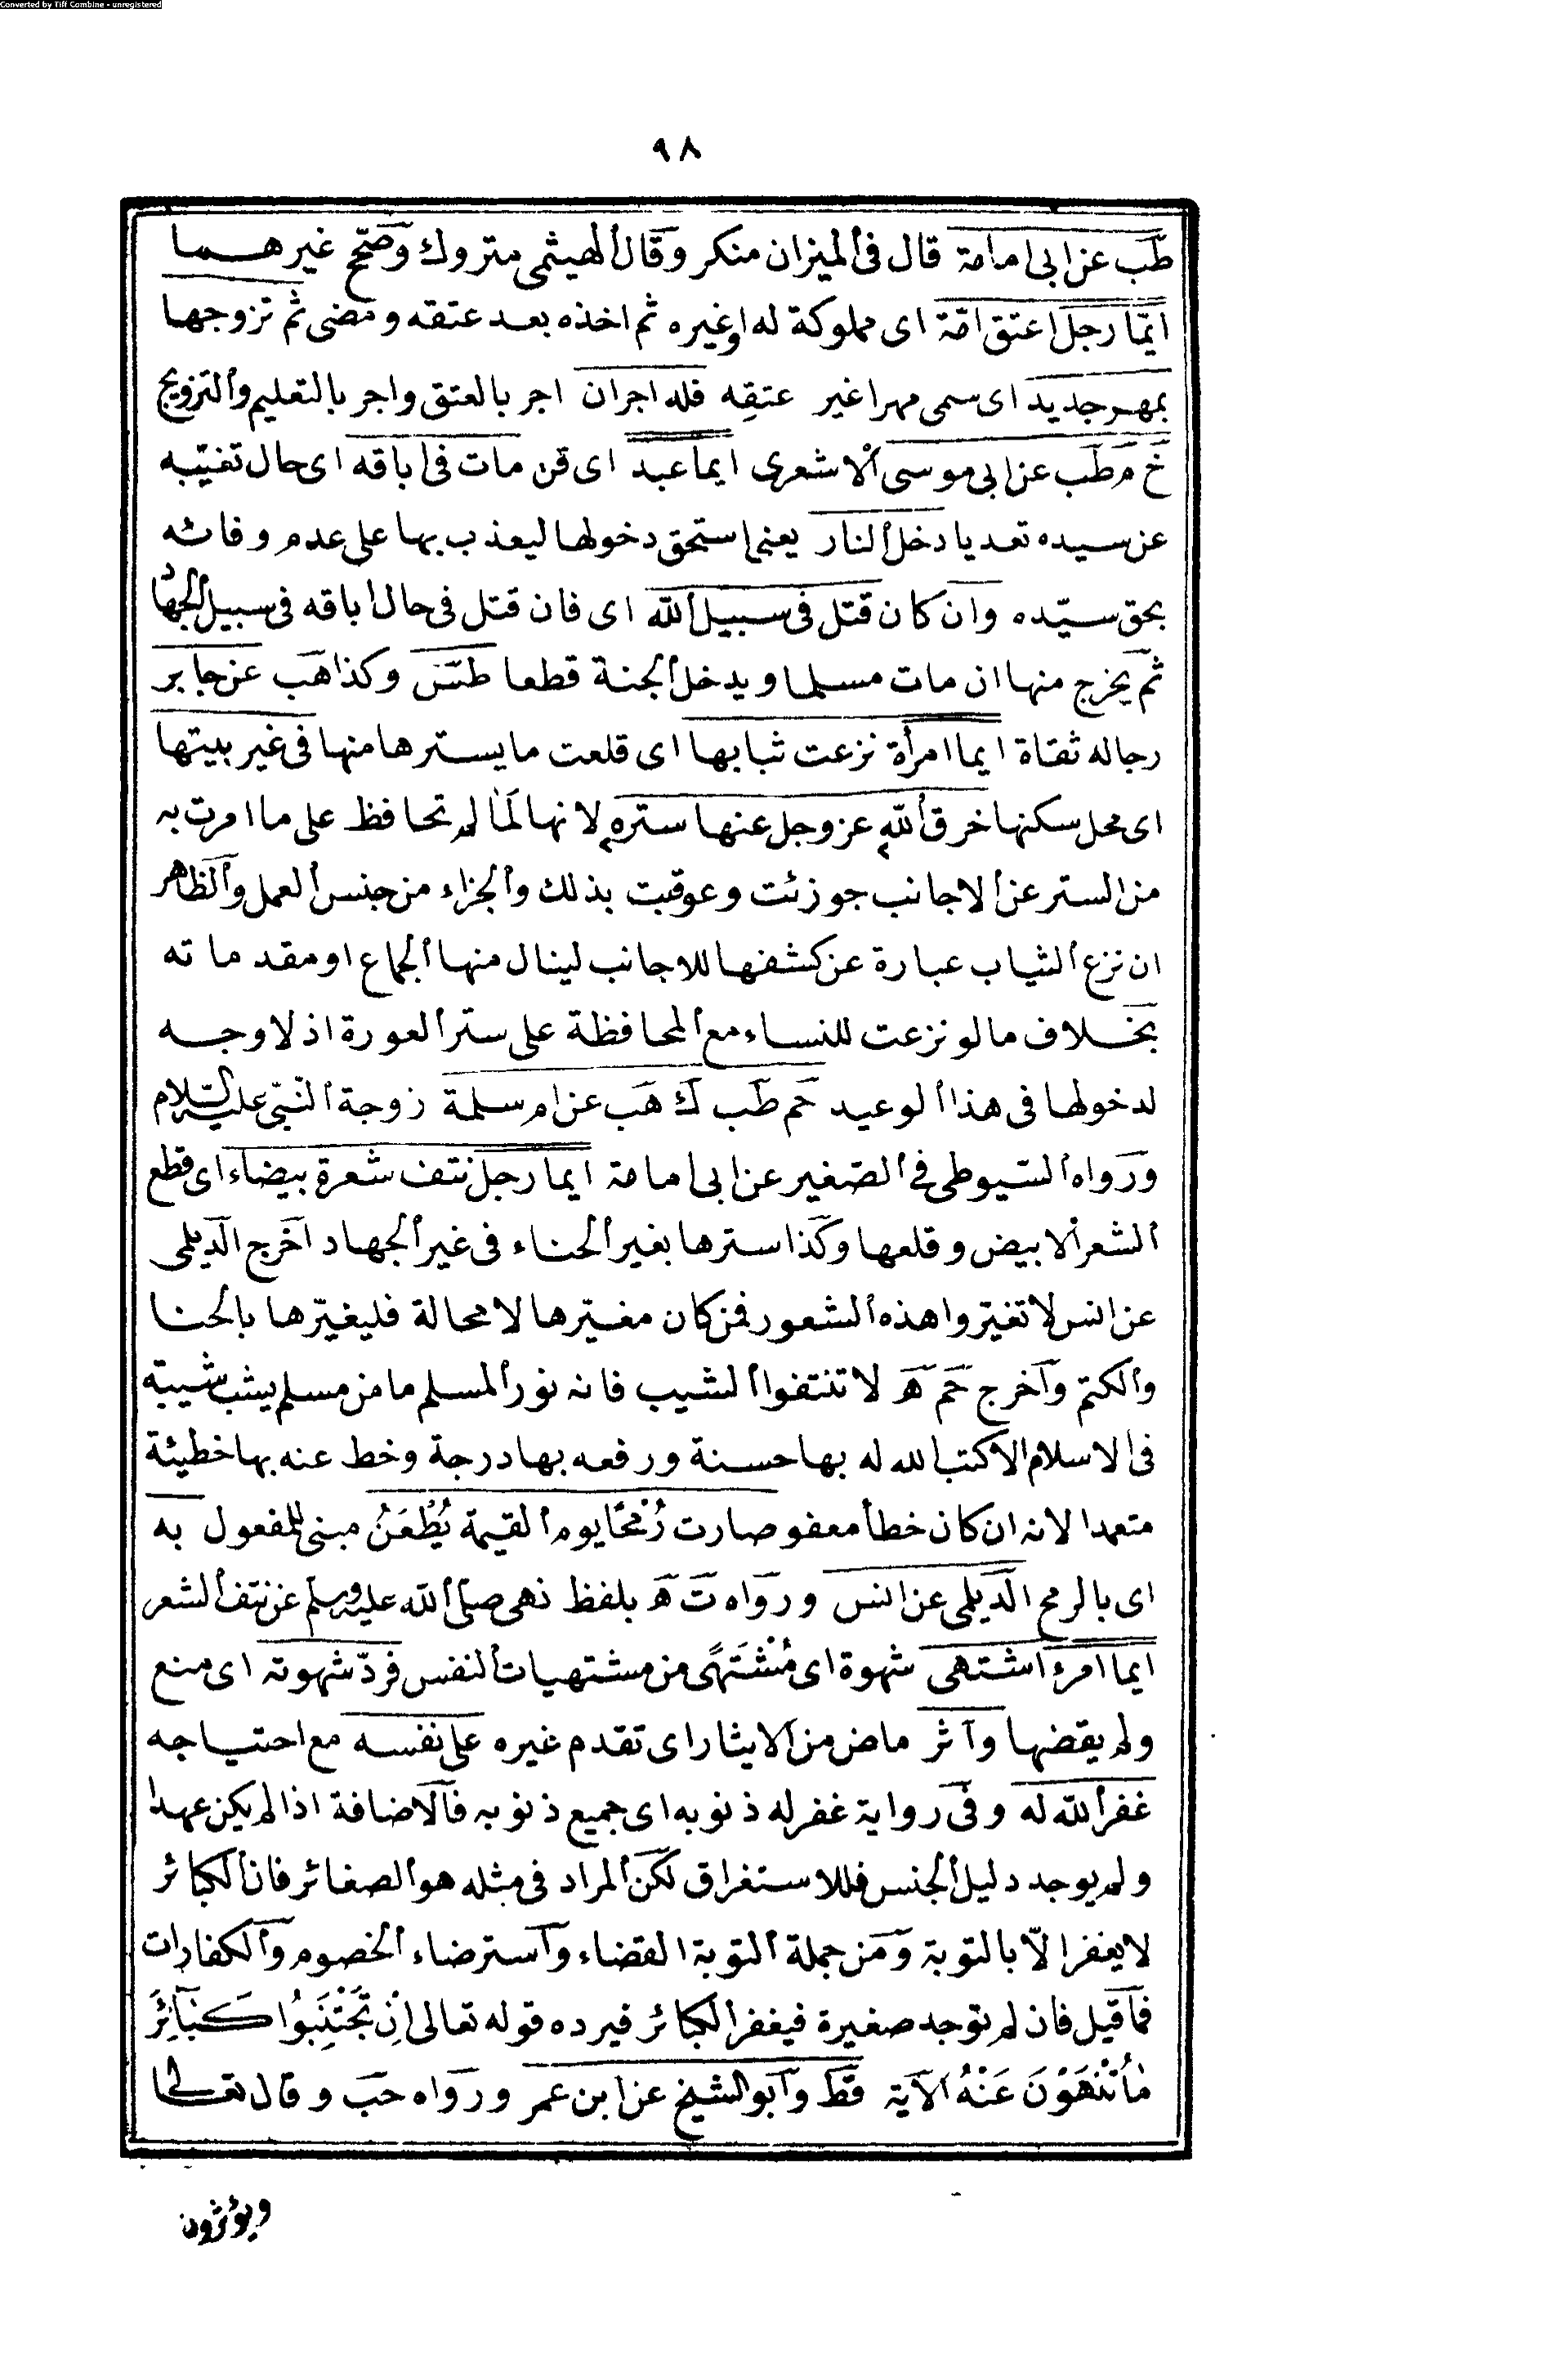 Converted by Tiff Combine - unregistered
٩٨
طب عن ابى امامة قال فى الميزان منكر وقال الهيثمى متروك وصحح غيرهما
ايّما رجل اعتق امّة اى مملوكة له او غيره ثم اخذه بعد عتقه ومضى ثم تزوجها
بمهر جديد اى سمى مهرا غير عتقه فله اجران اجر بالعتق واجر بالتعليم والتزويج
خ م طب عن ابى موسى الاشعرى ايما عبد اى قن مات فى اباقه اى حال تغيّبه
عن سيده تعديا دخل النار يعنى استحق دخولها ليعذب بها على عدم وفائه
بحق سيّده وان كان قتل فى سبيل الله اى فان قتل فى حال اباقه فى سبيل الجهاد
ثم يخرج منها ان مات مسلما ويدخل الجنة قطعا طس وكذا هب عن جابر
رجاله ثقاة ايما امرأة نزعت ثيابها اى قلعت ما يسترها منها فى غير بيتها
اى محل سكنها خرق الله عز وجل عنها ستره لانها لما لم تحافظ على ما امرت به
من الستر عن الاجانب جوزئت وعوقبت بذلك والجزاء من جنس العمل والظاهر
ان نزع الثياب عبارة عن كشفها للاجانب لينال منها الجماع او مقدماته
بخلاف ما لو نزعت للنساء مع المحافظة على ستر العورة اذ لا وجه
لدخولها فى هذا الوعيد حم طب ك هب عن ام سلمة زوجة النّبى عليه السّلام
ورواه السّيوطى فى الصّغير عن ابى امامة ايما رجل نتف شعرة بيضاء اى قطع
الشعر الابيض وقلعها وكذا سترها بغير الحناء فى غير الجهاد اخرج الديلمى
عن انس لا تغيّروا هذه الشعور فمن كان مغيّرها لا محالة فليغيّرها بالحنا
والكتم واخرج حم ه لا تنتفوا الشيب فانه نور المسلم ما من مسلم يشب شيبة
فى الاسلام الا كتب الله له بها حسنة ورفعه بها درجة وخط عنه بها خطيئة
متعمدا لانه ان كان خطأ معفو صارت رُمْحًا يوم القيمة يُطْعَنُ مبنى للمفعول به
اى بالرمح الديلمى عن انس ورواه ت ه بلفظ نهى صلى الله عليه وسلم عن نتف الشعر
ايما امرء اشتهى شهوة اى مُشْتَهًى من مشتهيات النفس فردّ شهوته اى منع
ولم يقضها وآثر ماض من الايثار اى تقدم غيره على نفسه مع احتياجه
غفر الله له وفى رواية غفر له ذنوبه اى جميع ذنوبه فالاضافة اذا لم يكن عهدا
ولم يوجد دليل الجنس فللاستغراق لكن المراد فى مثله هو الصغائر فان الكبائر
لا يغفر الّا بالتوبة ومن جملة التوبة القضاء واسترضاء الخصوم والكفارات
فما قيل فان لم توجد صغيرة فيغفر الكبائر فيرده قوله تعالى اِنْ تَجْتَنِبُوا كَبَآئِرَ
مٰا تُنْهَوْنَ عَنْهُ الآية قط وابو الشيخ عن ابن عمر ورواه حب وقال تعالى
ويؤثرون